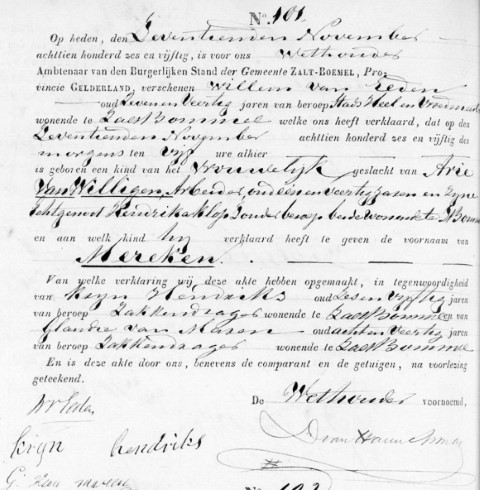 No. 101.
Op heden, den Zeventienden November
achttien honderd zes en vijftig, is voor ons Wethouder
Ambtenaar van den Burgerlijken Stand der Gemeente ZALT-BOEMEL, Pro-
vincie GELDERLAND, verschenen Willem van Eeden
oud Zeven en Veertig jaren van beroep Stads Heel en Vroed
wonende te Zalt Bommel welke ons heeft verklaard, dat op den
Zeventienden November achttien honderd zes en vijftig des
morgens ten vijf ure alhier
is geboren een kind van het Vrouwelijk geslacht van Arie
van Willigen, Arbeider, oud een en Veertig Jaren en Zyne
Echtgenoot Hendrika Klop Zonder beroep beide wonende te Z Bomm
en aan welk kind hy verklaard heeft te geven de voornaam van
Mereken.
Van welke verklaring wij deze akte hebben opgemaakt, in tegenwoordigheid
van Kryn Hendriks oud Zes en Vyftig jaren
van beroep Zakkendrager wonende te Zalt Bommel en van
van Maren oud acht en Veertig jaren
van beroep Zakkendrager wonende te Zalt Bommel
En is deze akte door ons, benevens de comparant en de getuigen, na voorlezing
geteekend.
De Wethouder voornoemd,
kryn hendriks